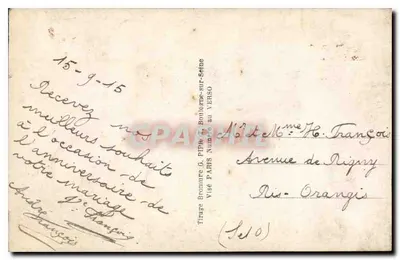 15-9-15
Recevez nos
meilleurs souhaits
à l'occasion de
l'anniversaire de
votre mariage
V. François
André François
Tirage Bromure G. Boulogne-sur-Seine
Visé PARIS au VERSO
M et Mme H. François
Avenue de Rigny
Ris-Orangis
(S et O)